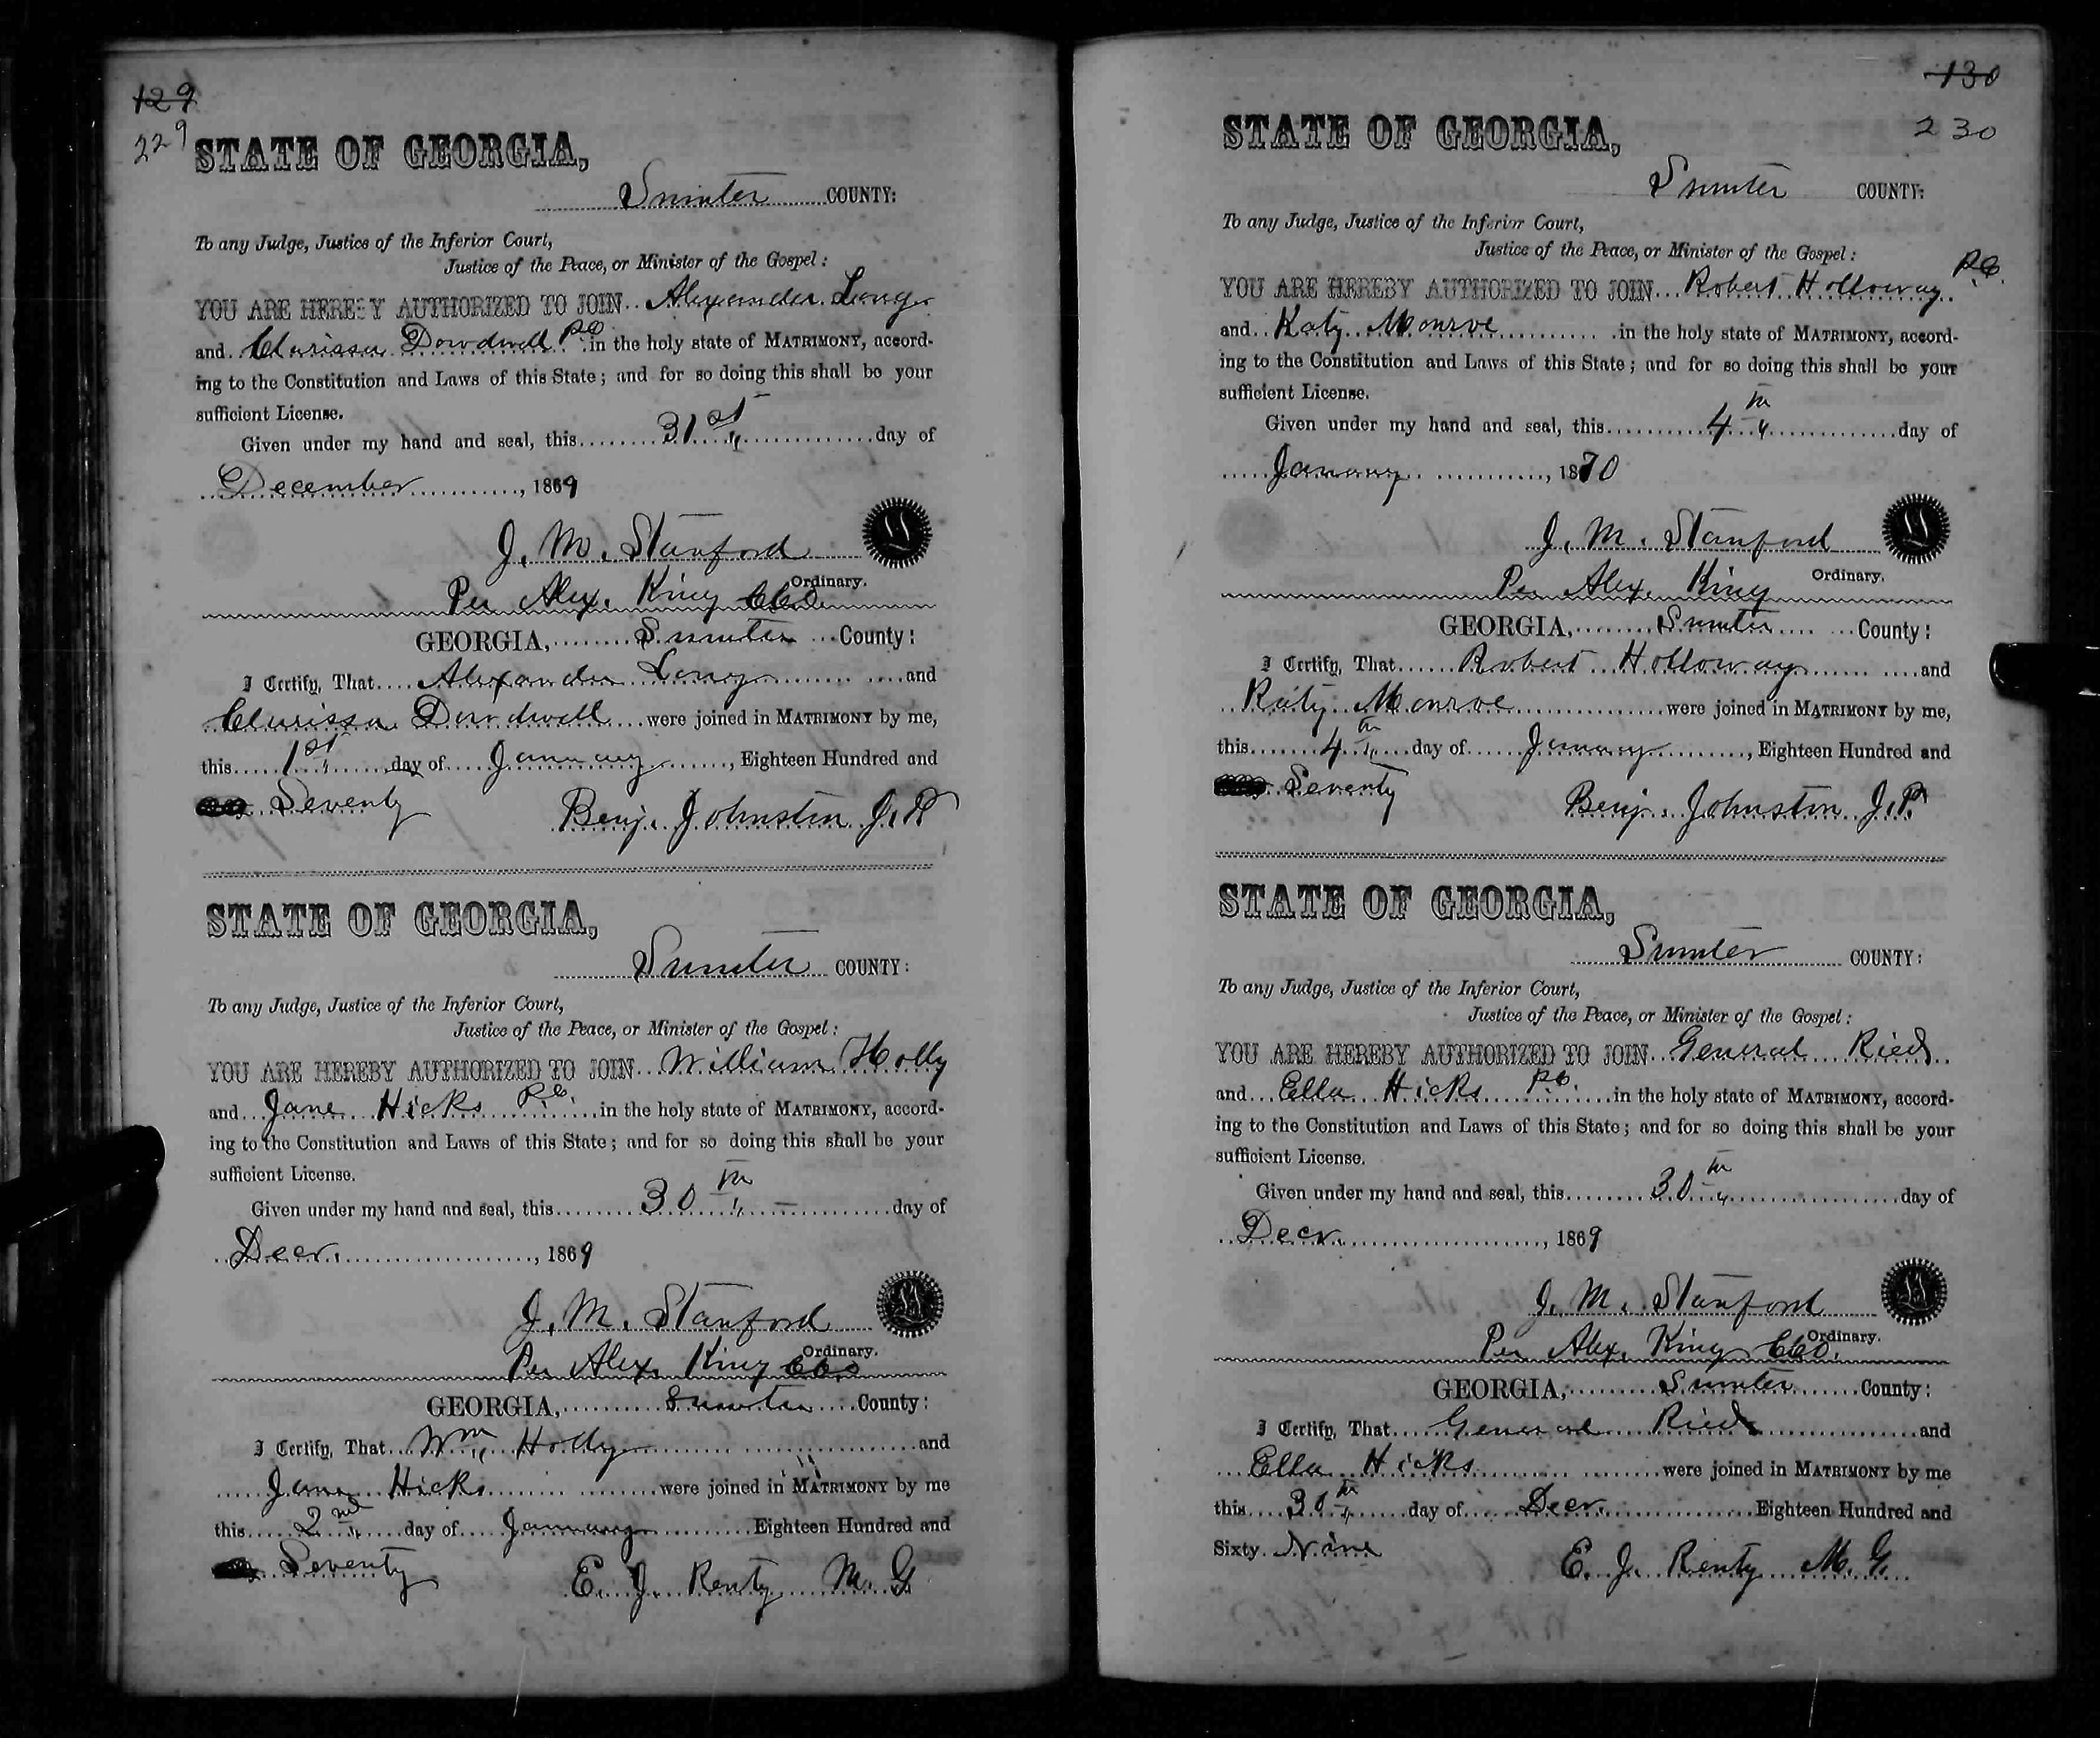 129
229
STATE OF GEORGIA,
Sumter COUNTY:
To any Judge, Justice of the Inferior Court,
Justice of the Peace, or Minister of the Gospel:
YOU ARE HEREBY AUTHORIZED TO JOIN Alexander Long
and Clarissa Dowdwell P.C. in the holy state of MATRIMONY, accord-
ing to the Constitution and Laws of this State; and for so doing this shall be your
sufficient License.
Given under my hand and seal, this 31st day of
December, 1869
J. M. Stanford
Ordinary.
Per Alex. King C.C.O.
GEORGIA, Sumter County:
I Certify, That Alexander Long and
Clarissa Dowdwell were joined in MATRIMONY by me,
this 1st day of January, Eighteen Hundred and
Seventy Benj. Johnston J.P.
STATE OF GEORGIA,
Sumter COUNTY:
To any Judge, Justice of the Inferior Court,
Justice of the Peace, or Minister of the Gospel:
YOU ARE HEREBY AUTHORIZED TO JOIN William Holly
and Jane Hicks P.C. in the holy state of MATRIMONY, accord-
ing to the Constitution and Laws of this State; and for so doing this shall be your
sufficient License.
Given under my hand and seal, this 30th day of
Decr., 1869
J. M. Stanford
Ordinary.
Per Alex. King C.C.O.
GEORGIA, Sumter County:
I Certify, That Wm. Holly and
Jane Hicks were joined in MATRIMONY by me
this 2nd day of January Eighteen Hundred and
Seventy E. J. Renty M. G.
130
230
STATE OF GEORGIA,
Sumter COUNTY:
To any Judge, Justice of the Inferior Court,
Justice of the Peace, or Minister of the Gospel:
YOU ARE HEREBY AUTHORIZED TO JOIN Robert Holloway P.C.
and Katy Monroe in the holy state of MATRIMONY, accord-
ing to the Constitution and Laws of this State; and for so doing this shall be your
sufficient License.
Given under my hand and seal, this 4th day of
January, 1870
J. M. Stanford
Ordinary.
Per Alex. King
GEORGIA, Sumter County:
I Certify, That Robert Holloway and
Katy Monroe were joined in MATRIMONY by me,
this 4th day of January, Eighteen Hundred and
Seventy Benj. Johnston J.P.
STATE OF GEORGIA,
Sumter COUNTY:
To any Judge, Justice of the Inferior Court,
Justice of the Peace, or Minister of the Gospel:
YOU ARE HEREBY AUTHORIZED TO JOIN General Ried
and Ella Hicks P.C. in the holy state of MATRIMONY, accord-
ing to the Constitution and Laws of this State; and for so doing this shall be your
sufficient License.
Given under my hand and seal, this 30th day of
Decr., 1869
J. M. Stanford
Ordinary.
Per Alex. King C.C.O.
GEORGIA, Sumter County:
I Certify, That General Ried and
Ella Hicks were joined in MATRIMONY by me
this 30th day of Decr. Eighteen Hundred and
Sixty Nine E. J. Renty M. G.